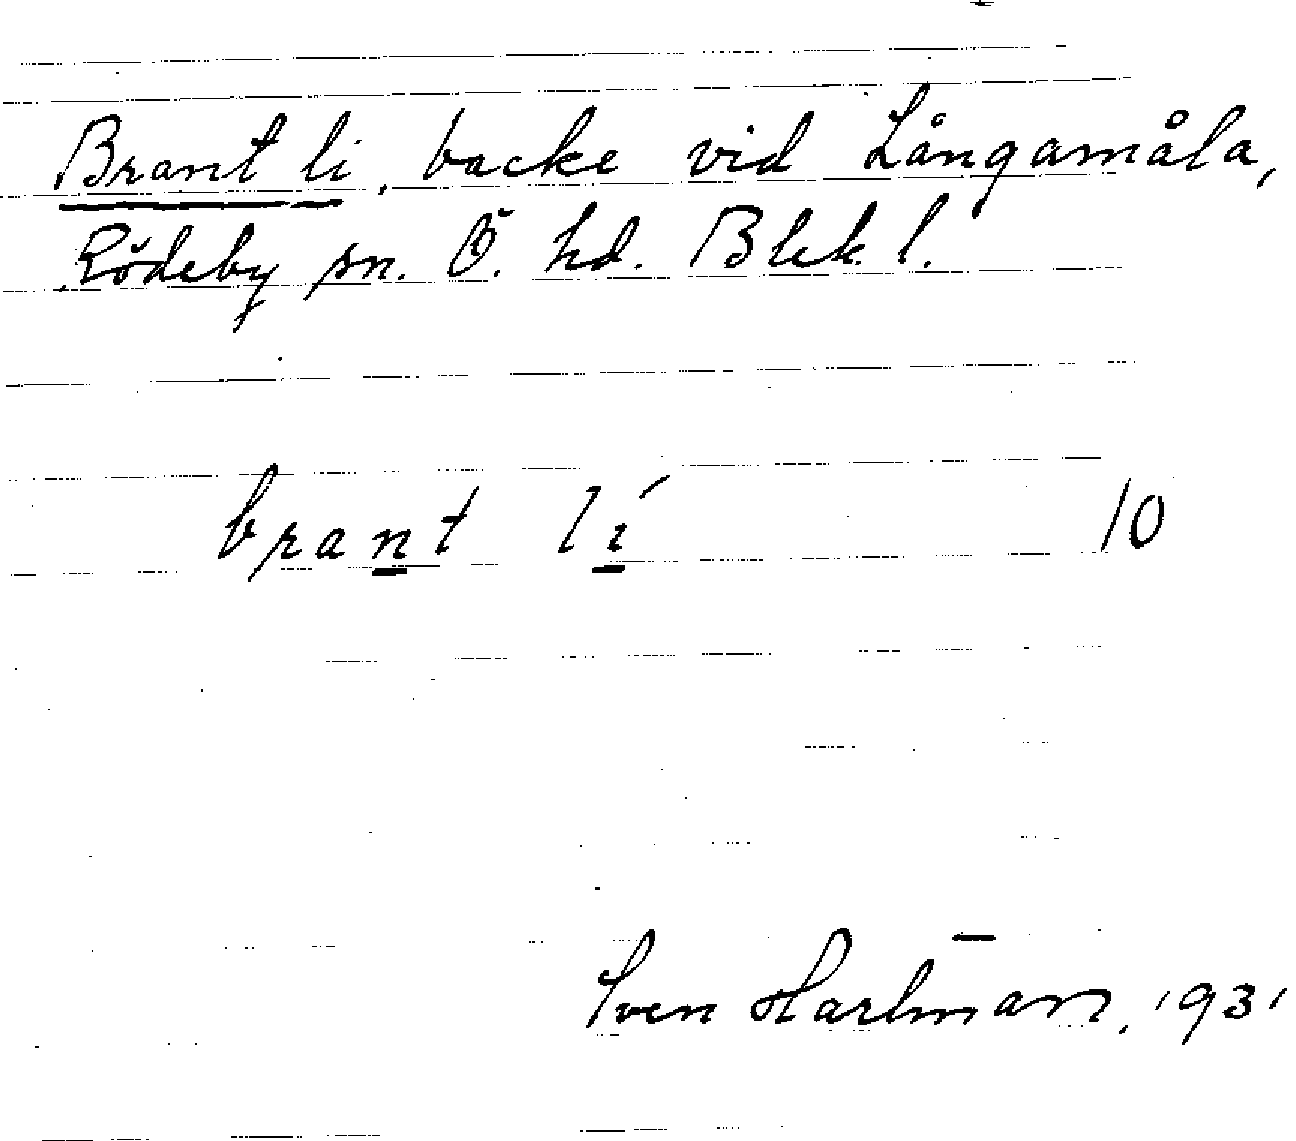 Brant li, backe vid Långamåla,
Rödeby sn. Ö. hd. Blek. l.
brant lí 10
Sven Hartman, 1931